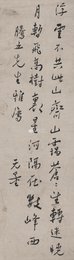 浮雲不共此山齊山靄蒼蒼望轉迷曉
月暫飛高樹裏星河隔在數峰西
五先生雅属